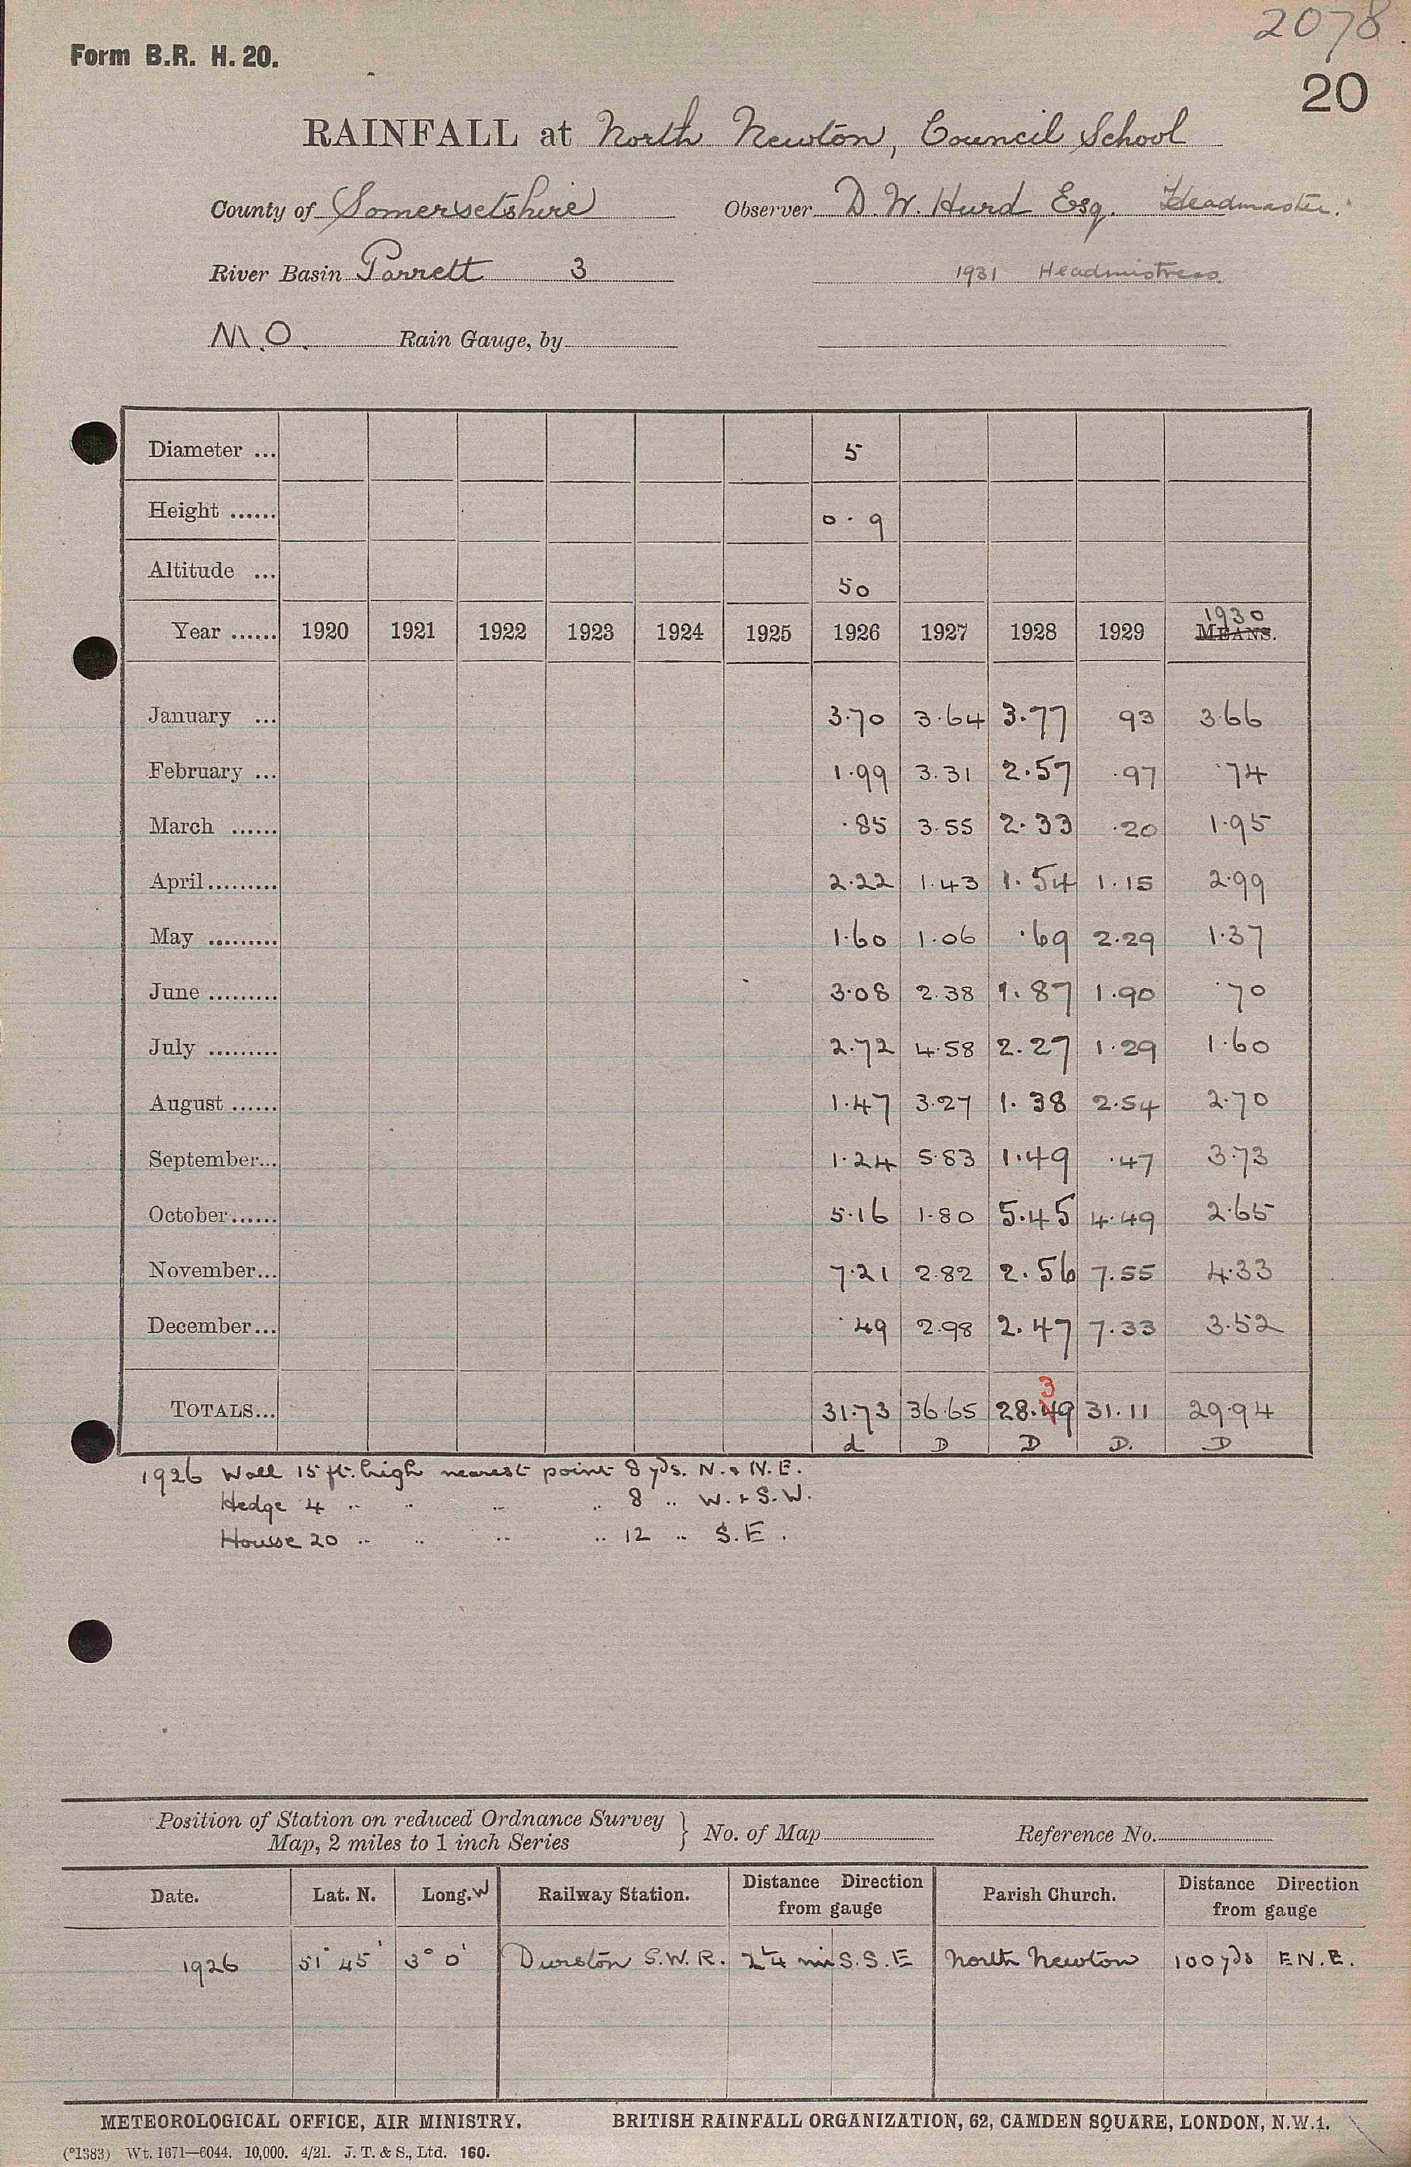 2078.
Form B.R. H. 20.
20
RAINFALL at North Newton, Council School
County of Somersetshire Observer D. W. Hurd Esq. Headmaster.
River Basin Parrett 3 1931 Headmistress
M.O. Rain Gauge, by
Diameter ... 5
Height ...... 0.9
Altitude ... 50
1930
Year ...... 1920 1921 1922 1923 1924 1925 1926 1927 1928 1929 MEANS.
January ... 3.70 3.64 3.77 93 3.66
February ... 1.99 3.31 2.57 .97 .74
March ...... .85 3.55 2.33 .20 1.95
April......... 2.22 1.43 1.54 1.15 2.99
May ......... 1.60 1.06 .69 2.29 1.37
June ......... 3.08 2.38 1.87 1.90 .70
July ......... 2.72 4.58 2.27 1.29 1.60
August ...... 1.47 3.27 1.38 2.54 2.70
September... 1.24 5.83 1.49 .47 3.73
October...... 5.16 1.80 5.45 4.49 2.65
November... 7.21 2.82 2.56 7.55 4.33
December... .49 2.98 2.47 7.33 3.52
3
TOTALS... 31.73 36.65 28.49 31.11 29.94
d D D D. D
1926 Wall 15 ft. high nearest point 8 yds. N. & N.E.
Hedge 4 .. .. .. .. 8 .. W. & S.W.
House 20 .. .. .. .. 12 .. S.E.
Position of Station on reduced Ordnance Survey
Map, 2 miles to 1 inch Series } No. of Map Reference No.
Date. Lat. N. Long. W Railway Station. Distance Direction from gauge Parish Church. Distance Direction from gauge
1926 51° 45' 3° 0' Durston G.W.R. 2¼ mi S.S.E North Newton 100 yds E.N.E.
METEOROLOGICAL OFFICE, AIR MINISTRY. BRITISH RAINFALL ORGANIZATION, 62, CAMDEN SQUARE, LONDON, N.W.1.
(*1383) Wt. 1671—6044. 10,000. 4/21. J. T. & S., Ltd. 160.